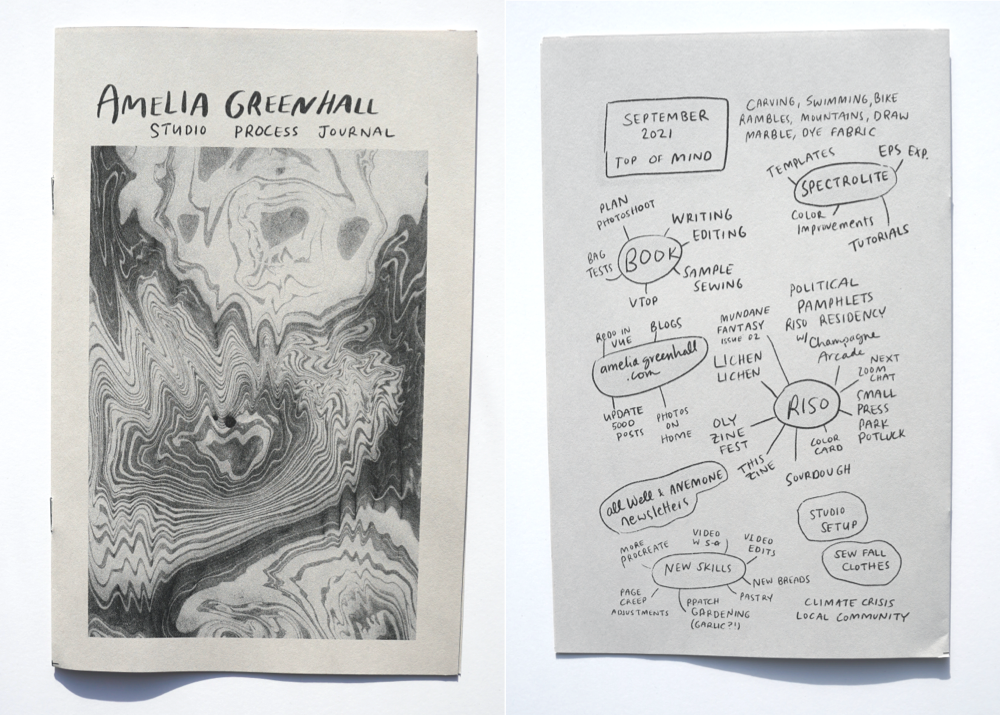 AMELIA GREENHALL
STUDIO PROCESS JOURNAL
SEPTEMBER
2021
TOP OF MIND
CARVING, SWIMMING, BIKE
RAMBLES, MOUNTAINS, DRAW
MARBLE, DYE FABRIC
TEMPLATES
EPS EXP.
SPECTROLITE
COLOR
Improvements
TUTORIALS
PLAN
PHOTOSHOOT
WRITING
EDITING
BOOK
BAG
TESTS
SAMPLE
SEWING
VTOP
POLITICAL
PAMPHLETS
RISO RESIDENCY
W/ Champagne
Arcade
MUNDANE
FANTASY
ISSUE 02
LICHEN
LICHEN
NEXT
ZOOM
CHAT
RISO
SMALL
PRESS
PARK
POTLUCK
OLY
ZINE
FEST
COLOR
CARD
THIS
ZINE
SOURDOUGH
REDO IN
VUE
BLOGS
amelia greenhall
.com
UPDATE
5000
POSTS
PHOTOS
ON
HOME
all Well & ANEMONE
newsletters
STUDIO
SETUP
SEW FALL
CLOTHES
MORE
PROCREATE
VIDEO
VIDEO
EDITS
NEW SKILLS
NEW BREADS
PASTRY
PAGE
CREEP
ADJUSTMENTS
PPATCH
GARDENING
(GARLIC?!)
CLIMATE CRISIS
LOCAL COMMUNITY